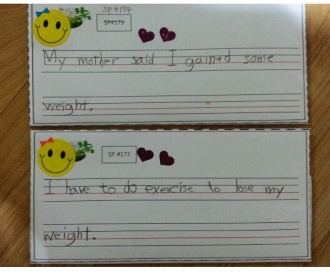 SP #174
SP#173
My mother said I gained some
weight.
SP #173
I have to do exercise to lose my
weight.